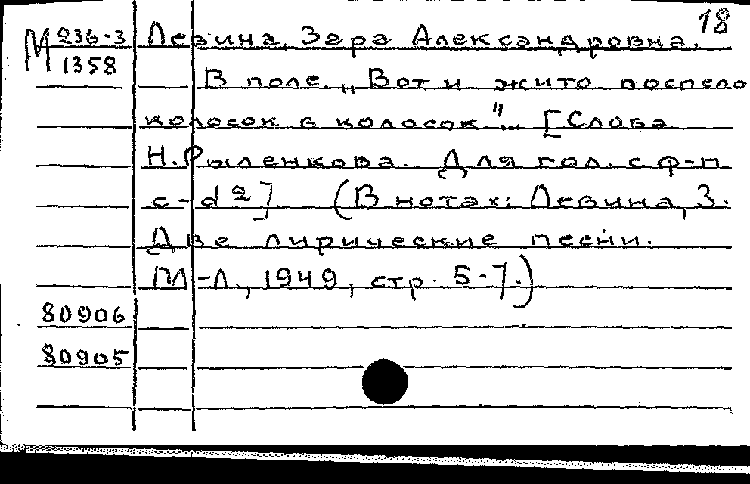 18
М 236-3 Левина, Зара Александровна.
1358
В поле. „Вот и жито поспело
колосок в колосок"... [Слова
Н. Рыленкова. Для гол. с ф-п.
c-d²] (В нотах: Левина, З.
Две лирические песни.
М-Л., 1949, стр. 5-7.)
80906
80905